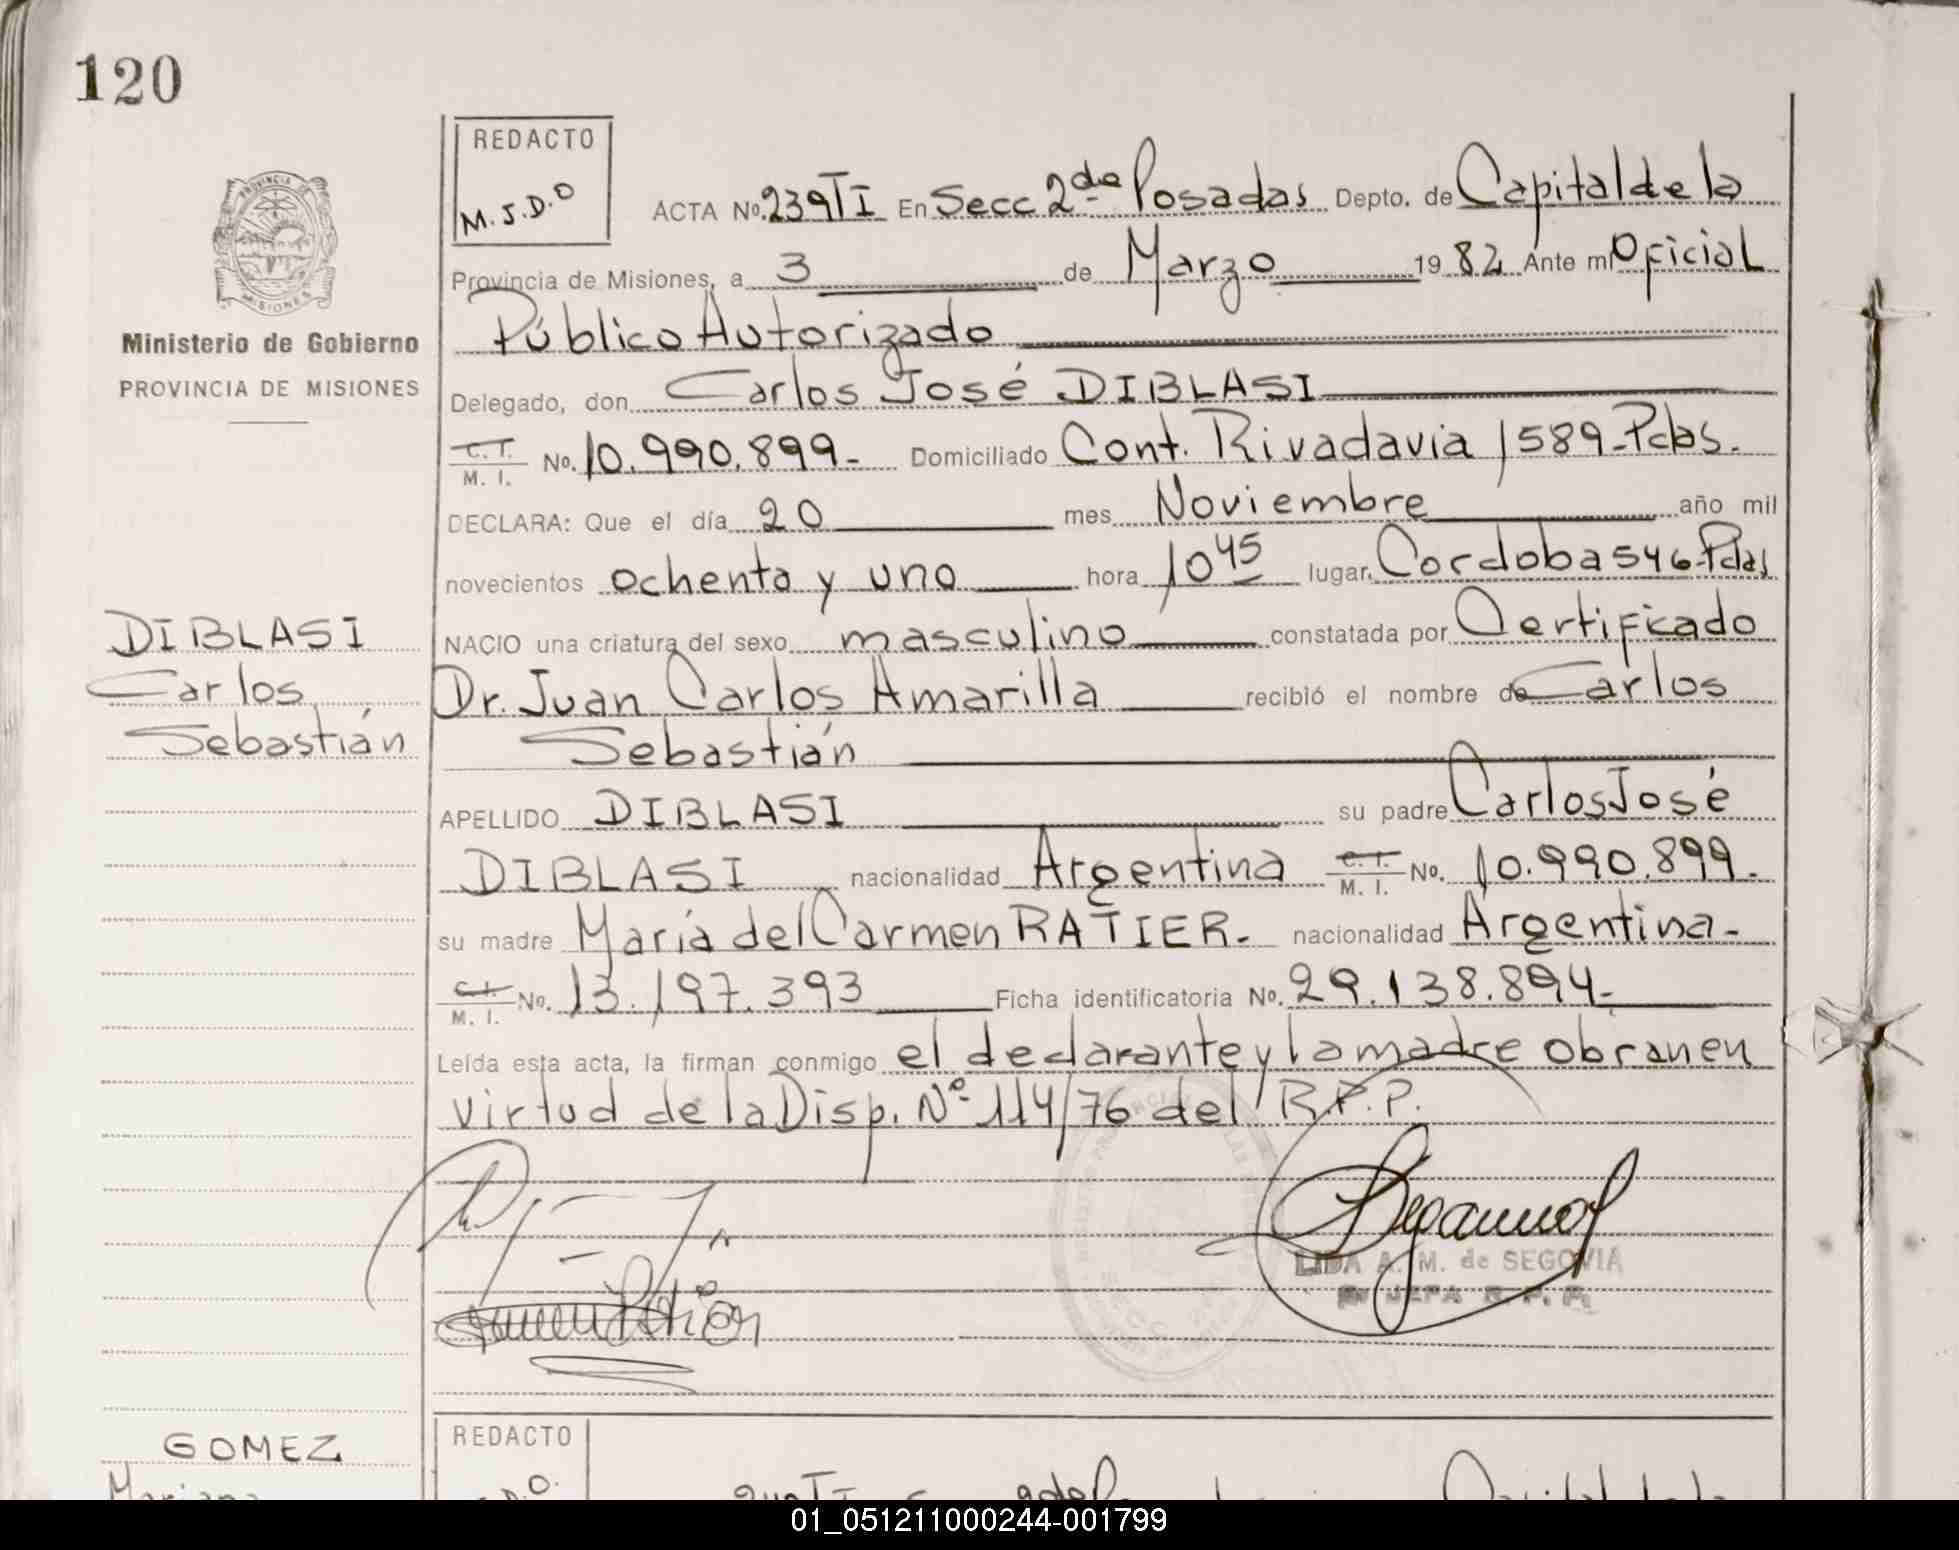 120
REDACTO
M.J.D.O
PROVINCIA DE
MISIONES
Ministerio de Gobierno
PROVINCIA DE MISIONES
ACTA No. 239 TI En Secc 2da Posadas Depto. de Capital de la
Provincia de Misiones, a 3 de Marzo 1982 Ante mi Oficial
Público Autorizado
Delegado, don Carlos José DIBLASI
C.I. M. I. No. 10.990.899- Domiciliado Cont. Rivadavia 1589-Pdas.
DECLARA: Que el día 20 mes Noviembre año mil
novecientos ochenta y uno hora 10 45 lugar Cordoba 546-Pdas
DIBLASI
Carlos
Sebastián
NACIO una criatura del sexo masculino constatada por Certificado
Dr. Juan Carlos Amarilla recibió el nombre de Carlos
Sebastián
APELLIDO DIBLASI su padre Carlos José
DIBLASI nacionalidad Argentina C.I. M. I. No. 10.990.899.
su madre María del Carmen RATIER- nacionalidad Argentina-
C.I. M. I. No. 13.197.393 Ficha identificatoria No. 29.138.894-
Leída esta acta, la firman conmigo el declarante y la madre obran en
virtud de la Disp. Nº 114/76 del R.P.P.
LIDA A. M. de SEGOVIA
JEFA R. P. P.
GOMEZ
Mariana
REDACTO
01_051211000244-001799